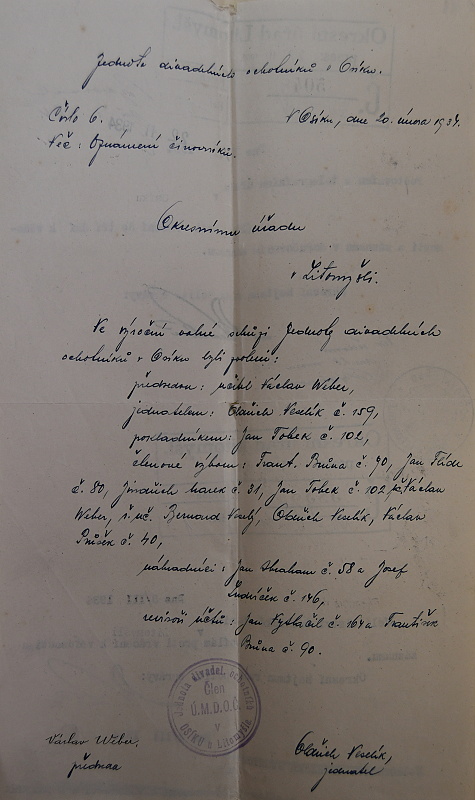 Jednota divadelních ochotníků v Osíku.
Číslo 6.
V Osíku, dne 20. února 1934.
Věc: Oznámení činovníků.
Okresnímu úřadu
v Litomyšli.
Ve výroční valné schůzi Jednoty divadelních
ochotníků v Osíku byli zvoleni:
předsedou: učitel Václav Weber,
jednatelem: Oldřich Veselík č. 159,
pokladníkem: Jan Tobek č. 102,
členové výboru: Frant. Brůna č. 90, Jan
č. 80, Jindřich Marek č. 31, Jan Tobek č. 102, Václav
Weber, ř. uč. Bernard Veselý, Oldřich Veselík, Václav
č. 40,
náhradníci: Jan Abraham č. 58 a Josef
č. 146,
revisoři účtů: Jan Vytlačil č. 164 a František
Brůna č. 90.
Jednota divadel. ochotníků
Člen
Ú.M.D.O.Č.
v
OSÍKU u Litomyšle
Václav Weber,
předseda
Oldřich Veselík,
jednatel